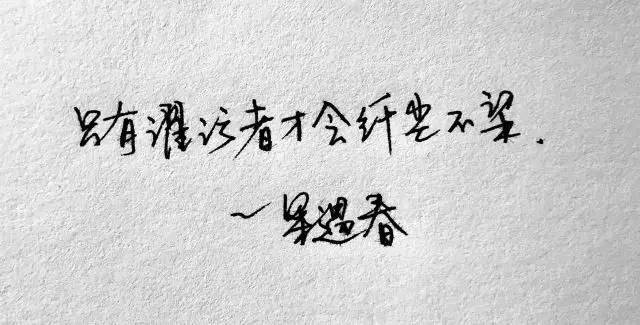 只有濯污者才会纤尘不染.
—遇春